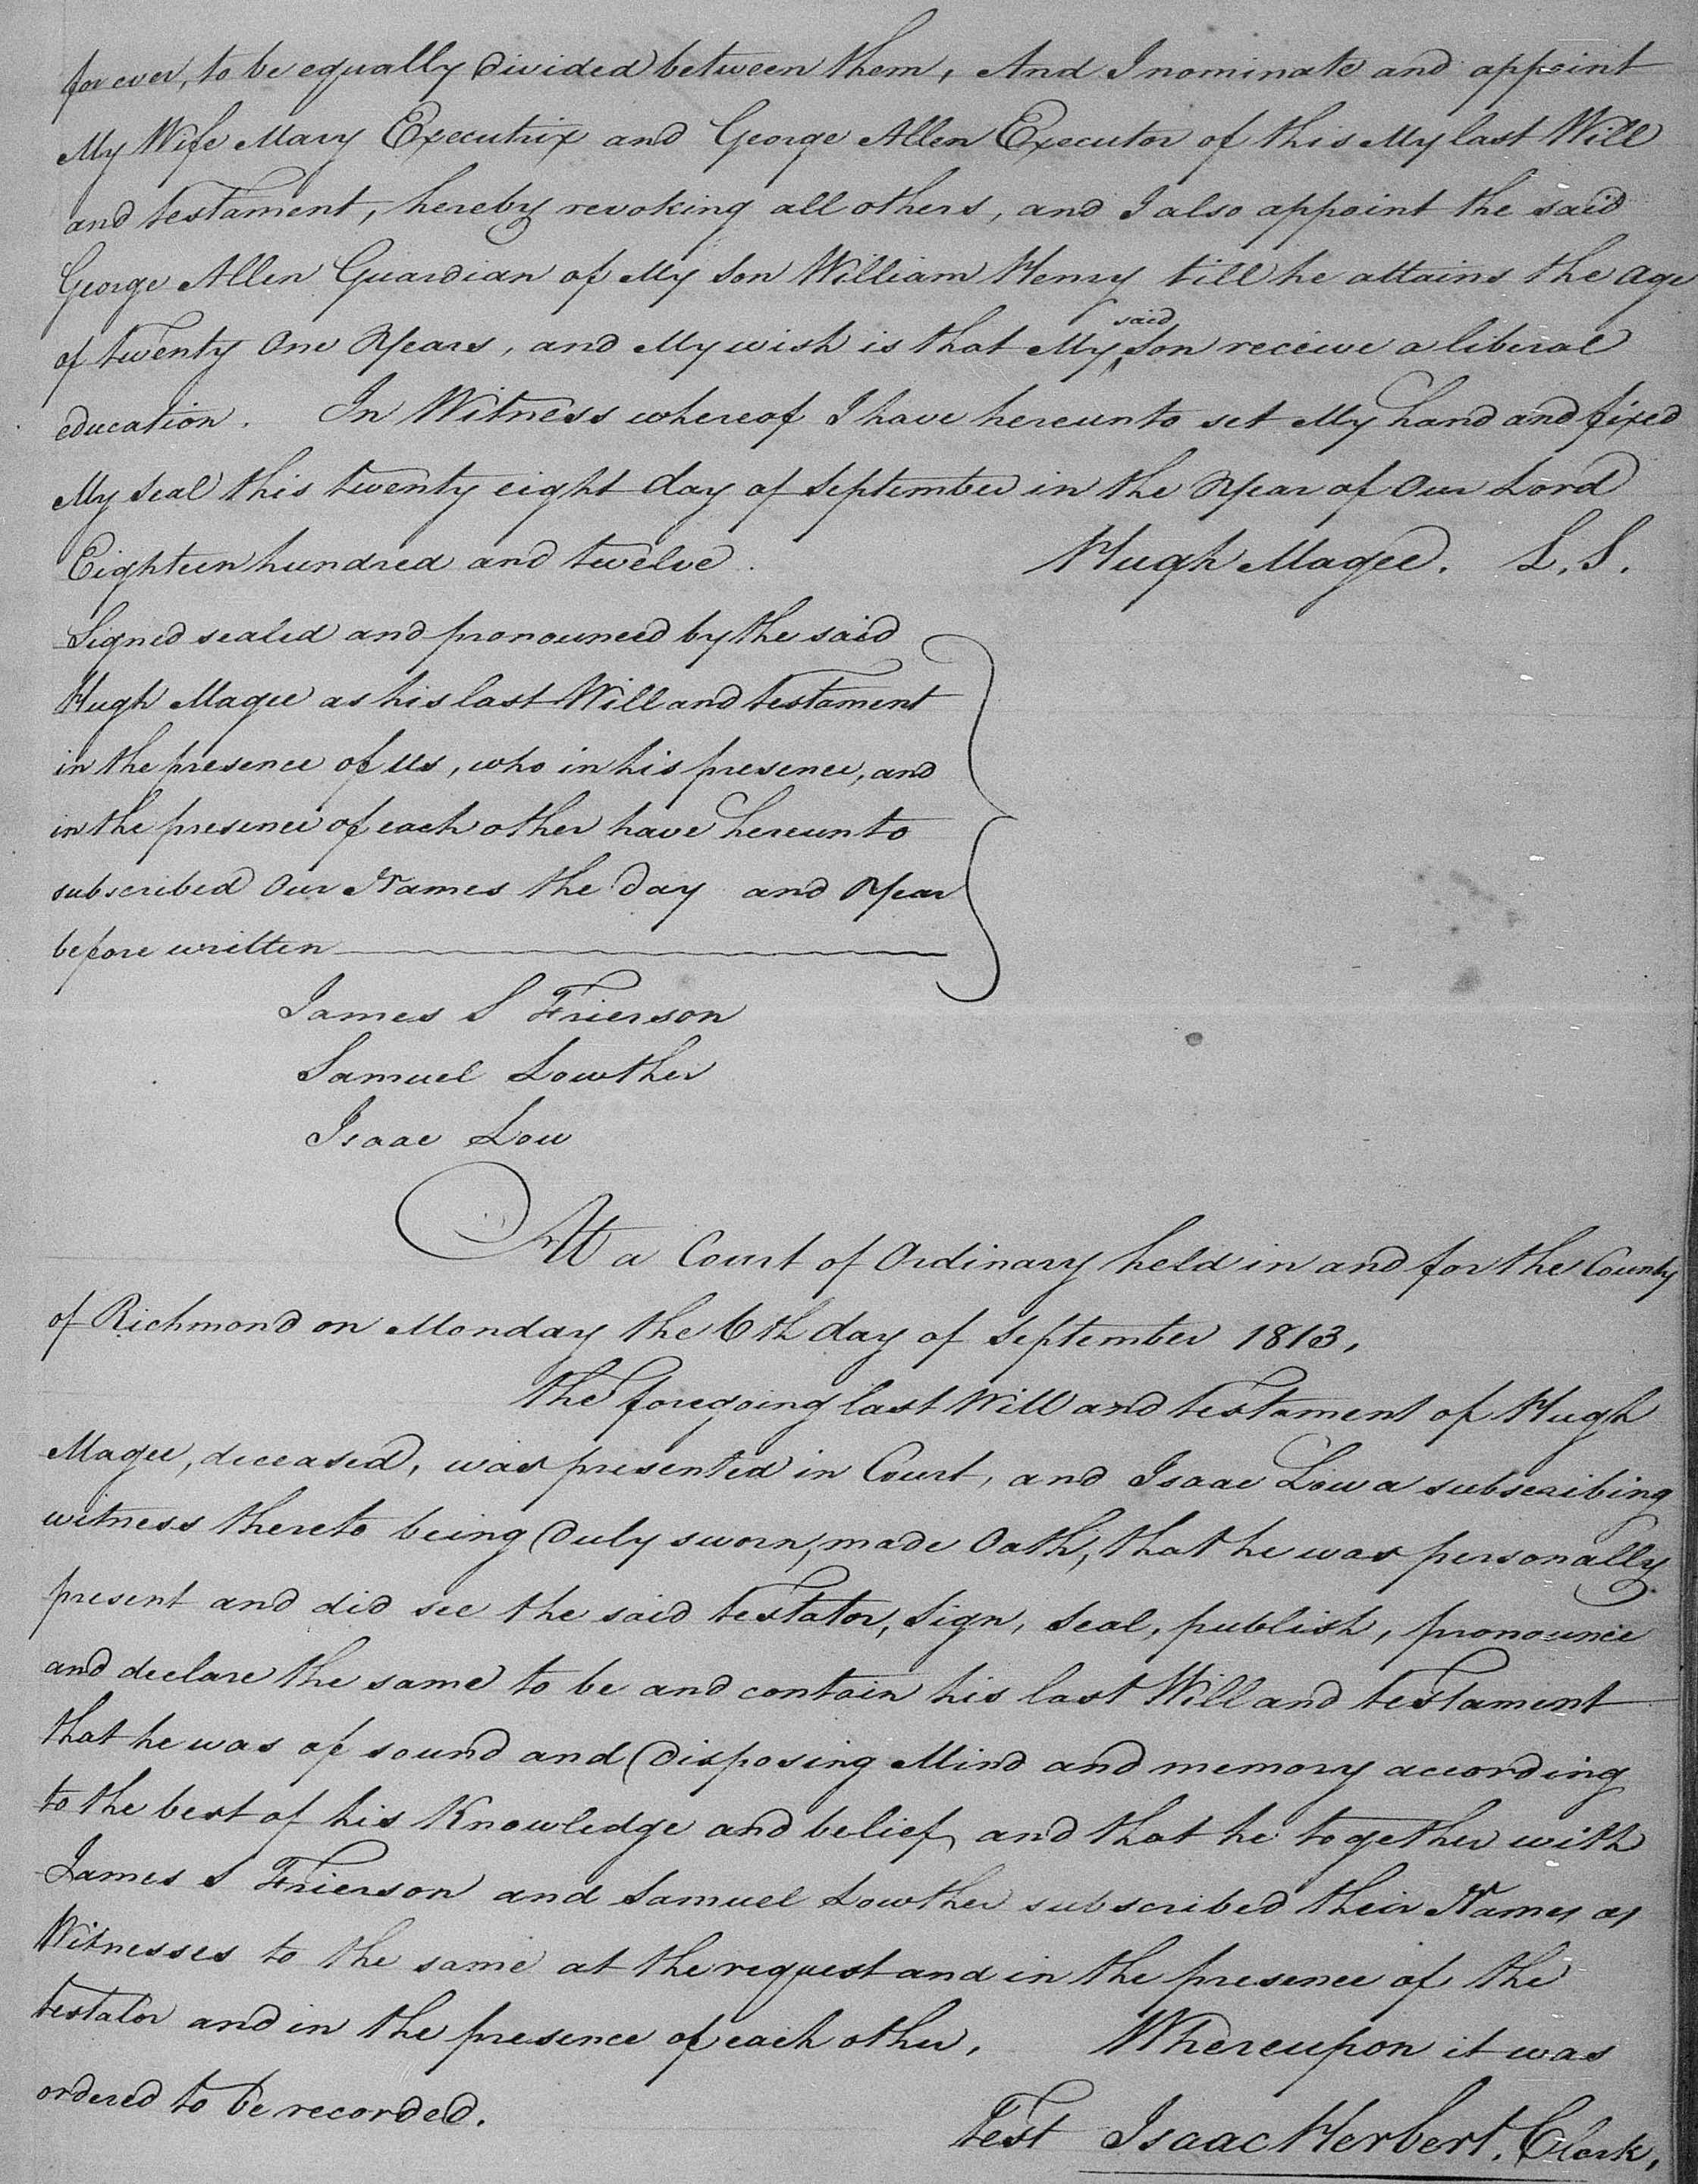 for ever, to be equally divided between them, And I nominate and appoint
My Wife Mary Executrix and George Allen Executor of this My last Will
and testament, hereby revoking all others, and I also appoint the said
George Allen Guardian of My Son William Henry till he attains the age
of twenty One Years, and My wish is that My said Son receive a liberal
education. In Witness whereof I have hereunto set My hand and fixed
My Seal this twenty eight day of September in the Year of Our Lord
Eighteen hundred and twelve. Hugh Magee. L. S.
Signed sealed and pronounced by the said
Hugh Magee as his last Will and testament
in the presence of us, who in his presence, and
in the presence of each other have hereunto
subscribed Our Names the day and Year
before written
James S Frierson
Samuel Lowther
Isaac Low
At a Court of Ordinary held in and for the County
of Richmond on Monday the 6th day of September 1813.
the foregoing last Will and testament of Hugh
Magee, deceased, was presented in Court, and Isaac Low a subscribing
witness thereto being duly sworn, made Oath, that he was personally
present and did see the said testator, Sign, Seal, publish, pronounce
and declare the same to be and contain his last Will and testament
that he was of sound and disposing Mind and memory according
to the best of his Knowledge and belief, and that he together with
James S Frierson and Samuel Lowther subscribed their Names as
Witnesses to the same at the request and in the presence of the
testator and in the presence of each other. Whereupon it was
ordered to be recorded.
Test Isaac Herbert. Clerk.